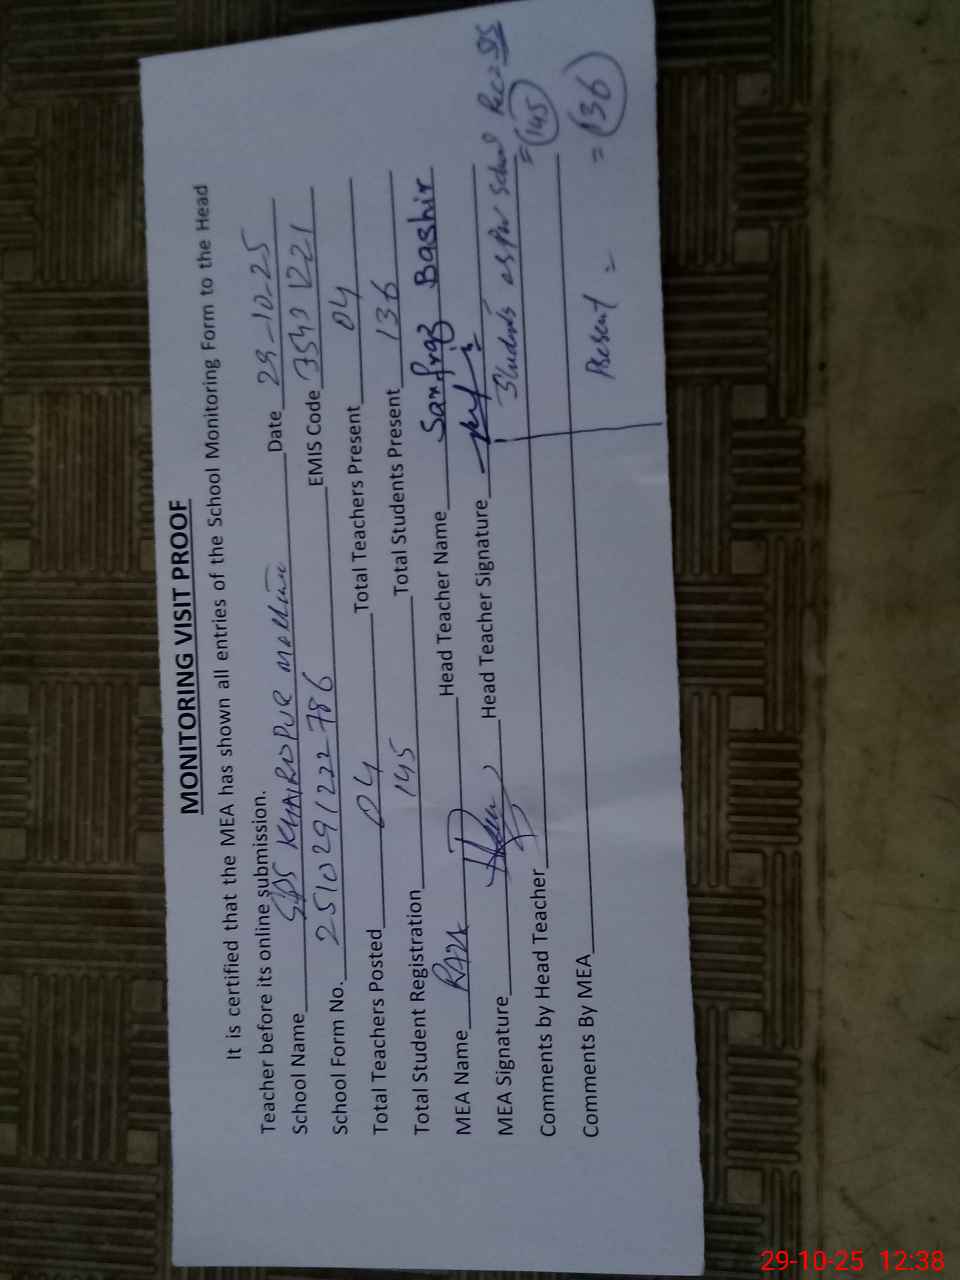 MONITORING VISIT PROOF
It is certified that the MEA has shown all entries of the School Monitoring Form to the Head
Teacher before its online submission.
School Name GPS KHAIRDPUR Date 29-10-25
School Form No. 2510291222786 EMIS Code 35401221
Total Teachers Posted 04 Total Teachers Present 04
Total Student Registration 145 Total Students Present 136
MEA Name RAZA Head Teacher Name Sarfraz Bashir
MEA Signature Head Teacher Signature
Comments by Head Teacher Students as per School
= 145
Comments By MEA Present = = 136
29-10-25 12:38